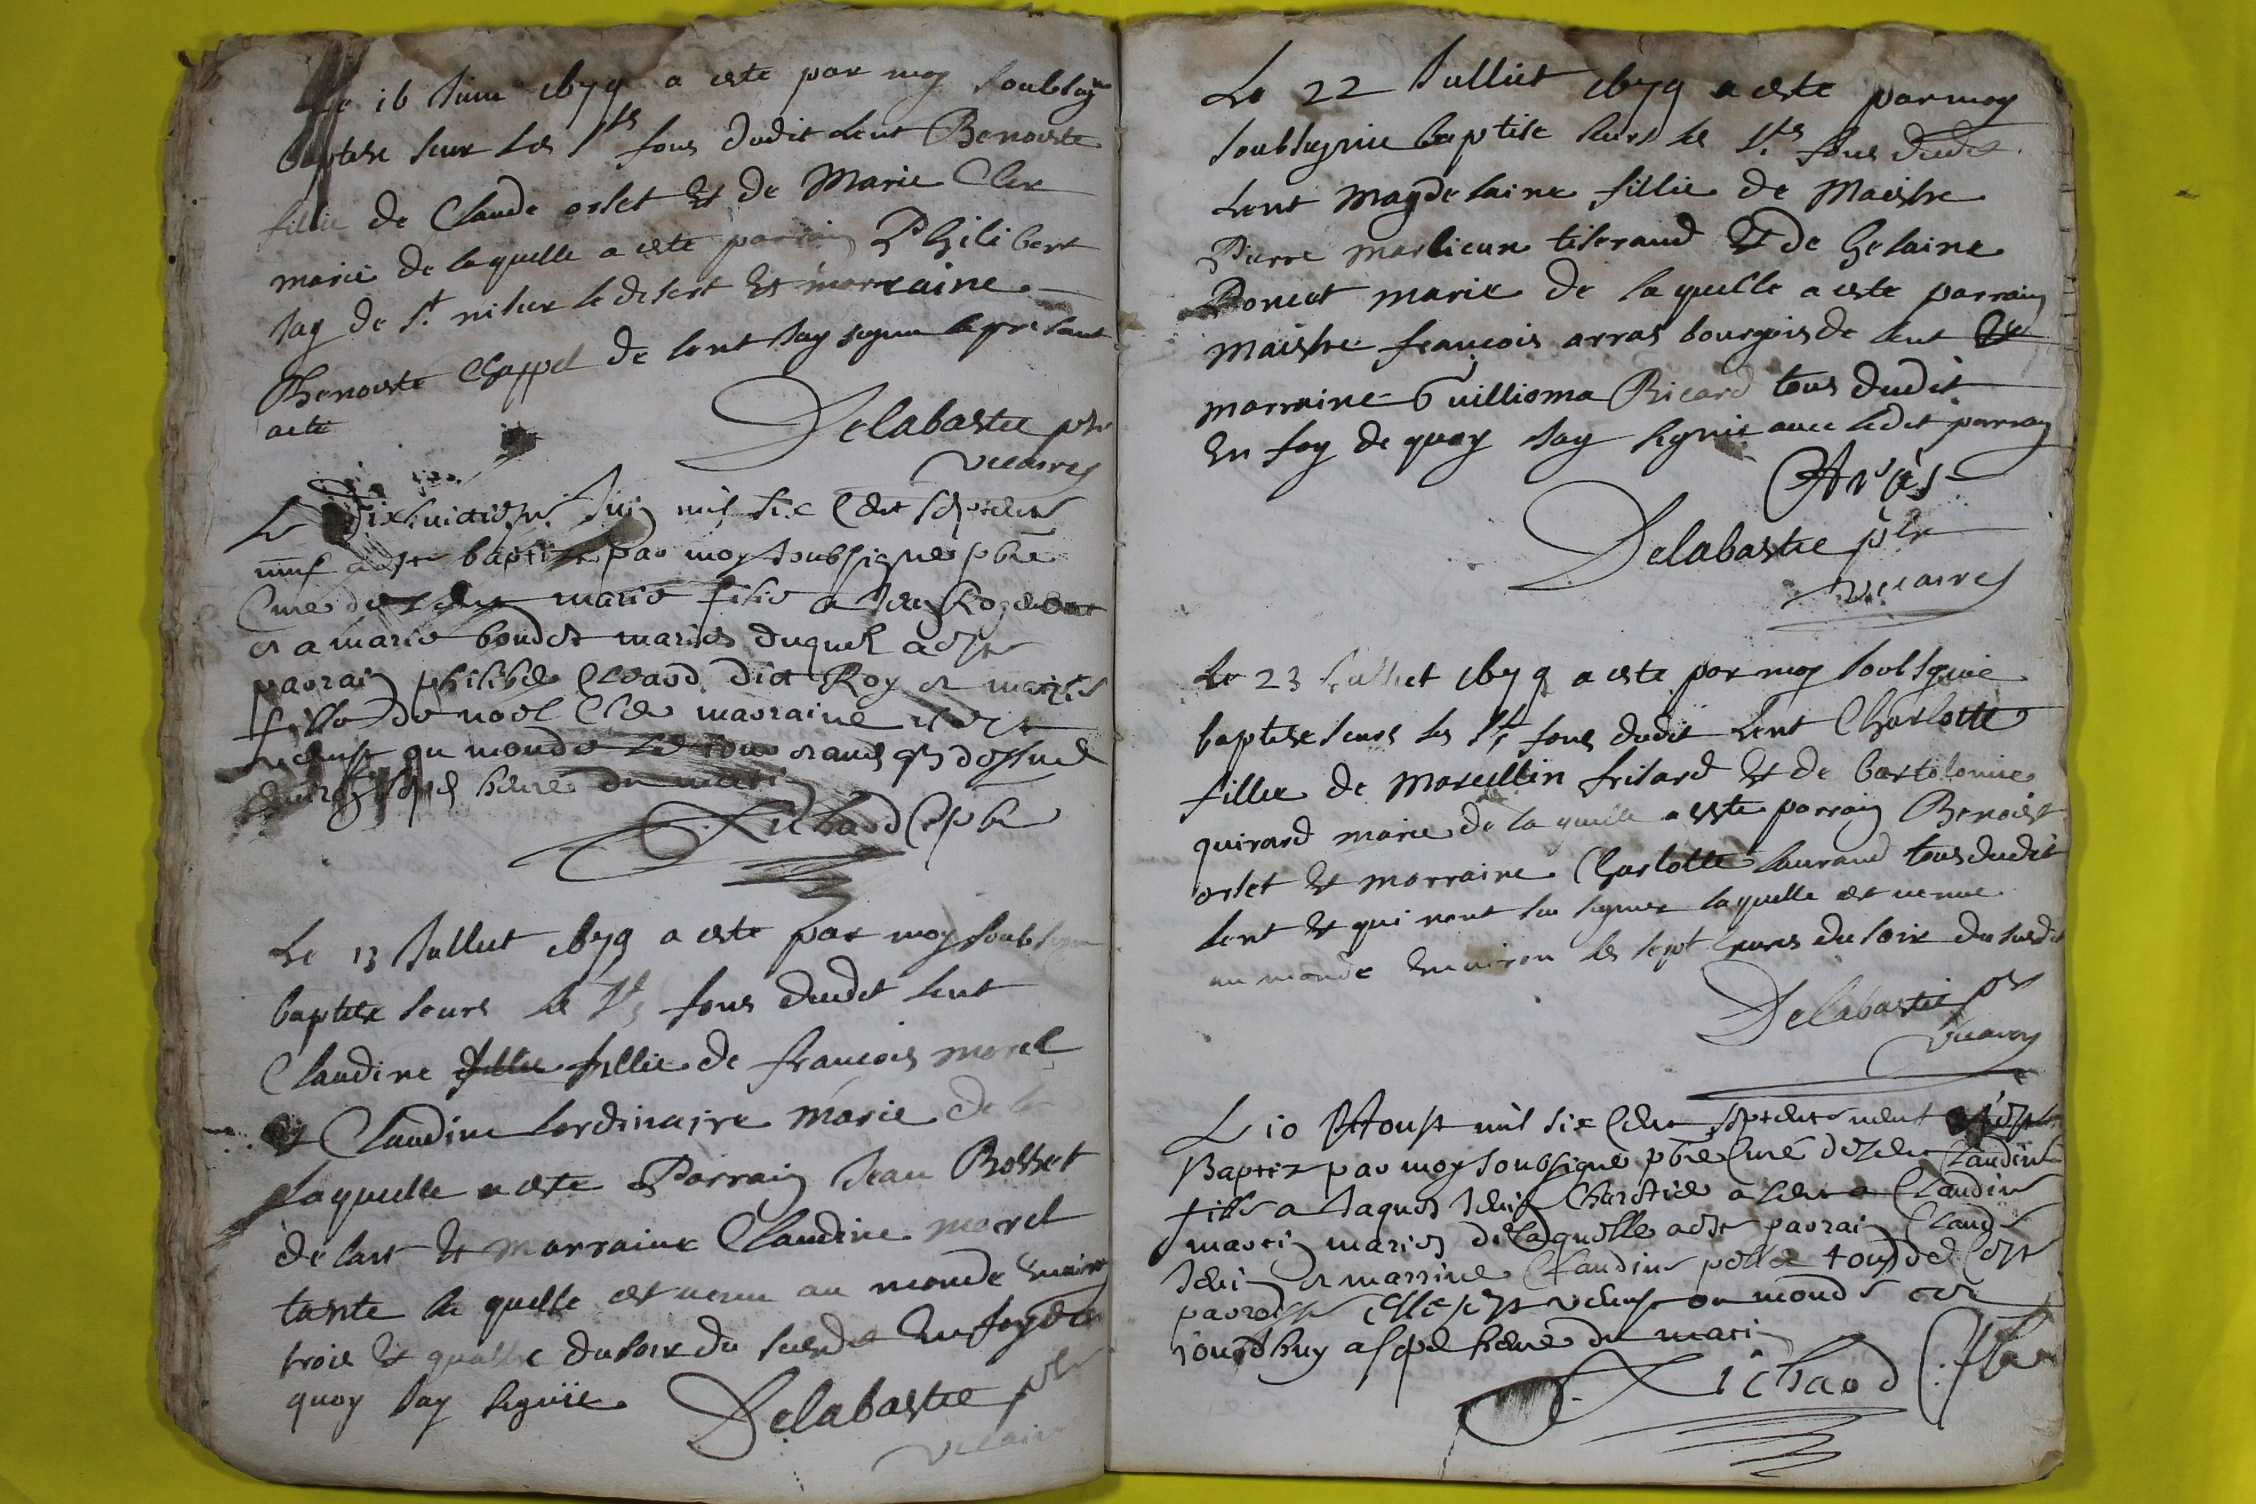 Le 16 Juin 1679 a este par moy soubsigne
baptise sur les Sts fons dudit Lent Benoiste
fillie de Claude orset et de Marie Cler
marie de laquelle a este parrain Philibert
Jay de St nisier le desert et marraine
Benoiste Chappel de Lent Jay signe le presant
acte
Delabastie pbr
vicaire
Le Juin mil six cent septente
neuf a este baptize par moy soubsigné pbre
Curé de Lent marie filie a
et a marie boudet mariés duquel a este
parrain philibert dict Roy et
fille de noel marraine et est
au monde
heure du matin
Richard C pbr
Le 13 Jullut 1679 a este par moy soubsigne
baptise seurs le Sts fons dudit Lent
Claudine fillie fillie de francois morel
et Claudine Lordinaire marie de la
laquelle a este Parrain Jean Bosset
de lent et marraine Claudine morel
tante la quelle est venu au monde
trois et quattre du soir du susdit En foy de
quoy Jay signie
Delabastie pbr
vicaire
Le 22 Julliet 1679 a este par moy
soubsignie baptise seurs le Sts fons dudit
Lent Magdelaine fillie de Maistre
Pierre marlieux tiserand et de helaine
Poncet marie de laquelle a este parrain
maistre francois arras bourgois de Lent et
marraine Guillioma Ricard tous dudit
En foy de quoy Jay signie avec ledit parrain
Aras
Delabastie pbr
vicaire
Le 23 Julliet 1679 a este par moy soubsignie
baptise seurs les Sts fons dudit Lent Charlotte
fillie de Marcellin frisard et de bartolomie
quirard marie de la quelle a este parrain Benoist
orset et marraine Charlotte Laurand tous dudit
Lent et qui nont su signer laquelle est venue
au monde environ les sept heures du soir du susdit
Delabastie pbr
vicaire
Le 10 Aoust mil six cent septente neuf a este
Baptize par moy soubsigné pbre Curé de Lent Claudine
fille a Jaques a Lent a Claudine
martin mariés de laquelle a este parrain Claude
et marrine Claudine tous de ceste
parroisse elle est venue au monde
jourdhuy a sept heure du matin
Richard C pbr